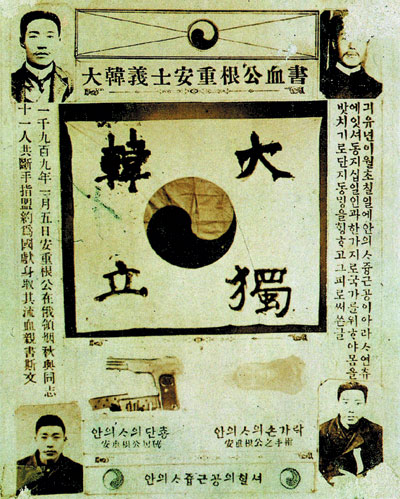 大韓義士安重根公血書
긔유년이월초칠일에안의ᄉᆞ즁근공이아라ᄉᆞ연츄
에잇셔동지십일인과한가지로국가를위ᄒᆞ야몸을
밧치기로단지동ᄆᆡᆼ을ᄒᆡᆼᄒᆞ고그피로써쓴글
大韓
獨立
一千九百九年 月五日安重根公在俄領烟秋與同志
十一人共斷手指盟約爲國獻身取其流血親書斯文
안의ᄉᆞ의단총
安重根公
안의ᄉᆞ의손가락
安重根公之手指
안의ᄉᆞ즁근공의혈셔